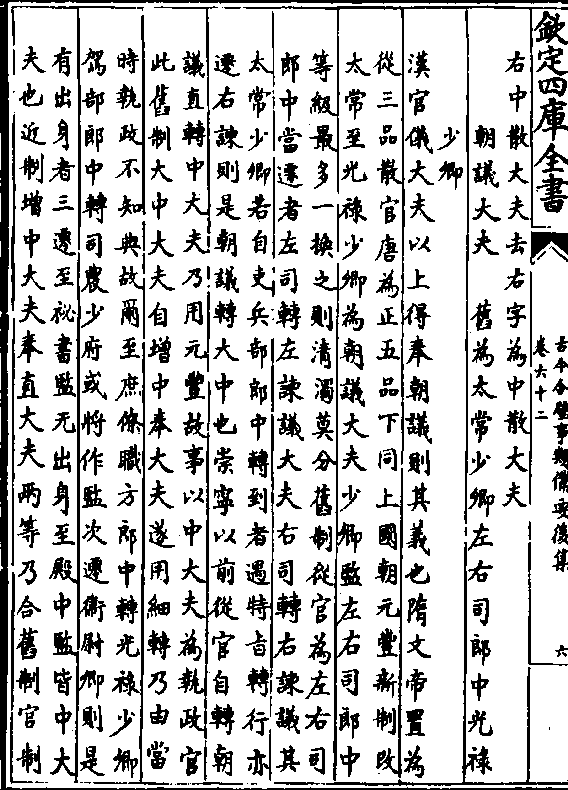 欽定四庫全書
古今合璧事類備要後集
卷六十二
六
右中散大夫去右字為中散大夫
朝議大夫　舊為太常少卿左右司郎中光禄
少卿
漢官儀大夫以上得奉朝議則其義也隋文帝置為
從三品散官唐為正五品下同上國朝元豐新制改
太常至光禄少卿為朝議大夫少卿監左右司郎中
等級最多一換之則清濁莫分舊制從官為左右司
郎中當遷者左司轉左諫議大夫右司轉右諫議其
太常少卿若自吏兵部郎中轉到者遇特㫖轉行亦
遷右諫則是朝議轉大中也崇寧以前從官自轉朝
議直轉中大夫乃用元豐故事以中大夫為執政官
此舊制大中大夫自增中奉大夫遂用細轉乃由當
時執政不知典故爾至庶僚職方郎中轉光禄少卿
駕部郎中轉司農少府或將作監次遷衛尉卿則是
有出身者三遷至祕書監无出身至殿中監皆中大
夫也近制增中大夫奉直大夫兩等乃合舊制官制